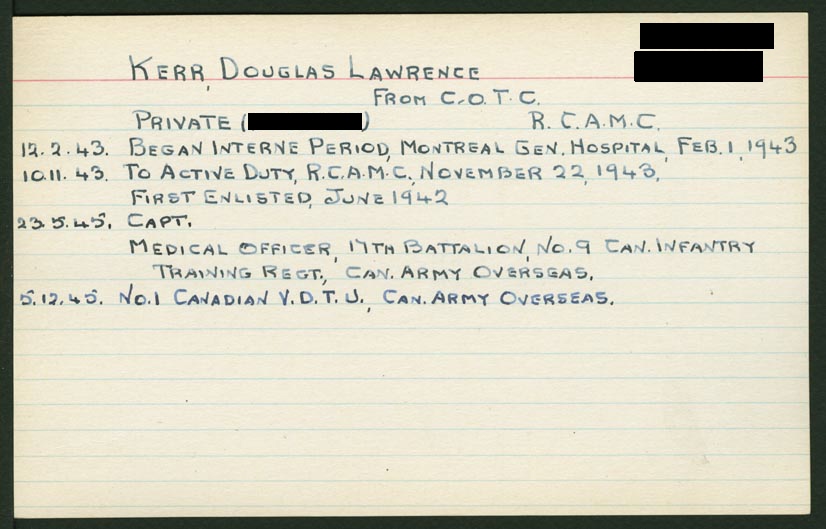 KERR, DOUGLAS LAWRENCE
FROM C.O.T.C.
PRIVATE ( ) R.C.A.M.C.
12.2.43. BEGAN INTERNE PERIOD, MONTREAL GEN. HOSPITAL, FEB. 1, 1943
10.11.43. TO ACTIVE DUTY, R.C.A.M.C., NOVEMBER 22, 1943.
FIRST ENLISTED, JUNE 1942
23.5.45. CAPT.
MEDICAL OFFICER, 17TH BATTALION, NO.9 CAN. INFANTRY
TRAINING REGT., CAN. ARMY OVERSEAS.
5.12.45. NO.1 CANADIAN V.D.T.U., CAN. ARMY OVERSEAS.